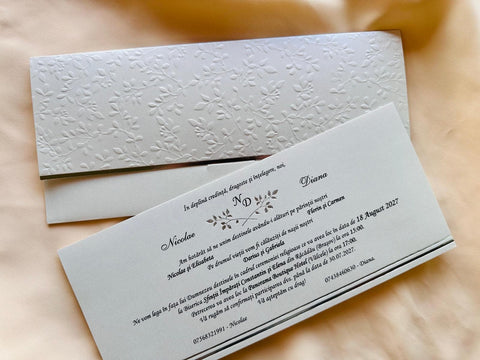 În deplină credință, dragoste și înțelegere, noi,
Nicolae
ND
Diana
Am hotărât să ne unim destinele avându-i alături pe părinții noștri
Nicolae și Elisabeta
Florin și Carmen
Pe drumul vieții vom fi călăuziți de nașii noștri
Darius și Gabriela
Ne vom lega în fața lui Dumnezeu destinele în cadrul ceremoniei religioase ce va avea loc în data de 18 August 2027
la Biserica Sfinții Împărați Constantin și Elena din Răcădău (Brașov) la ora 15:00.
Petrecerea va avea loc la Panorama Boutique Hotel (Vlădeni) la ora 17:00.
Vă rugăm să confirmați participarea dvs. până la data de 30.07.2027.
Vă așteptăm cu drag!
07368321991 - Nicolae
07438460630 - Diana.